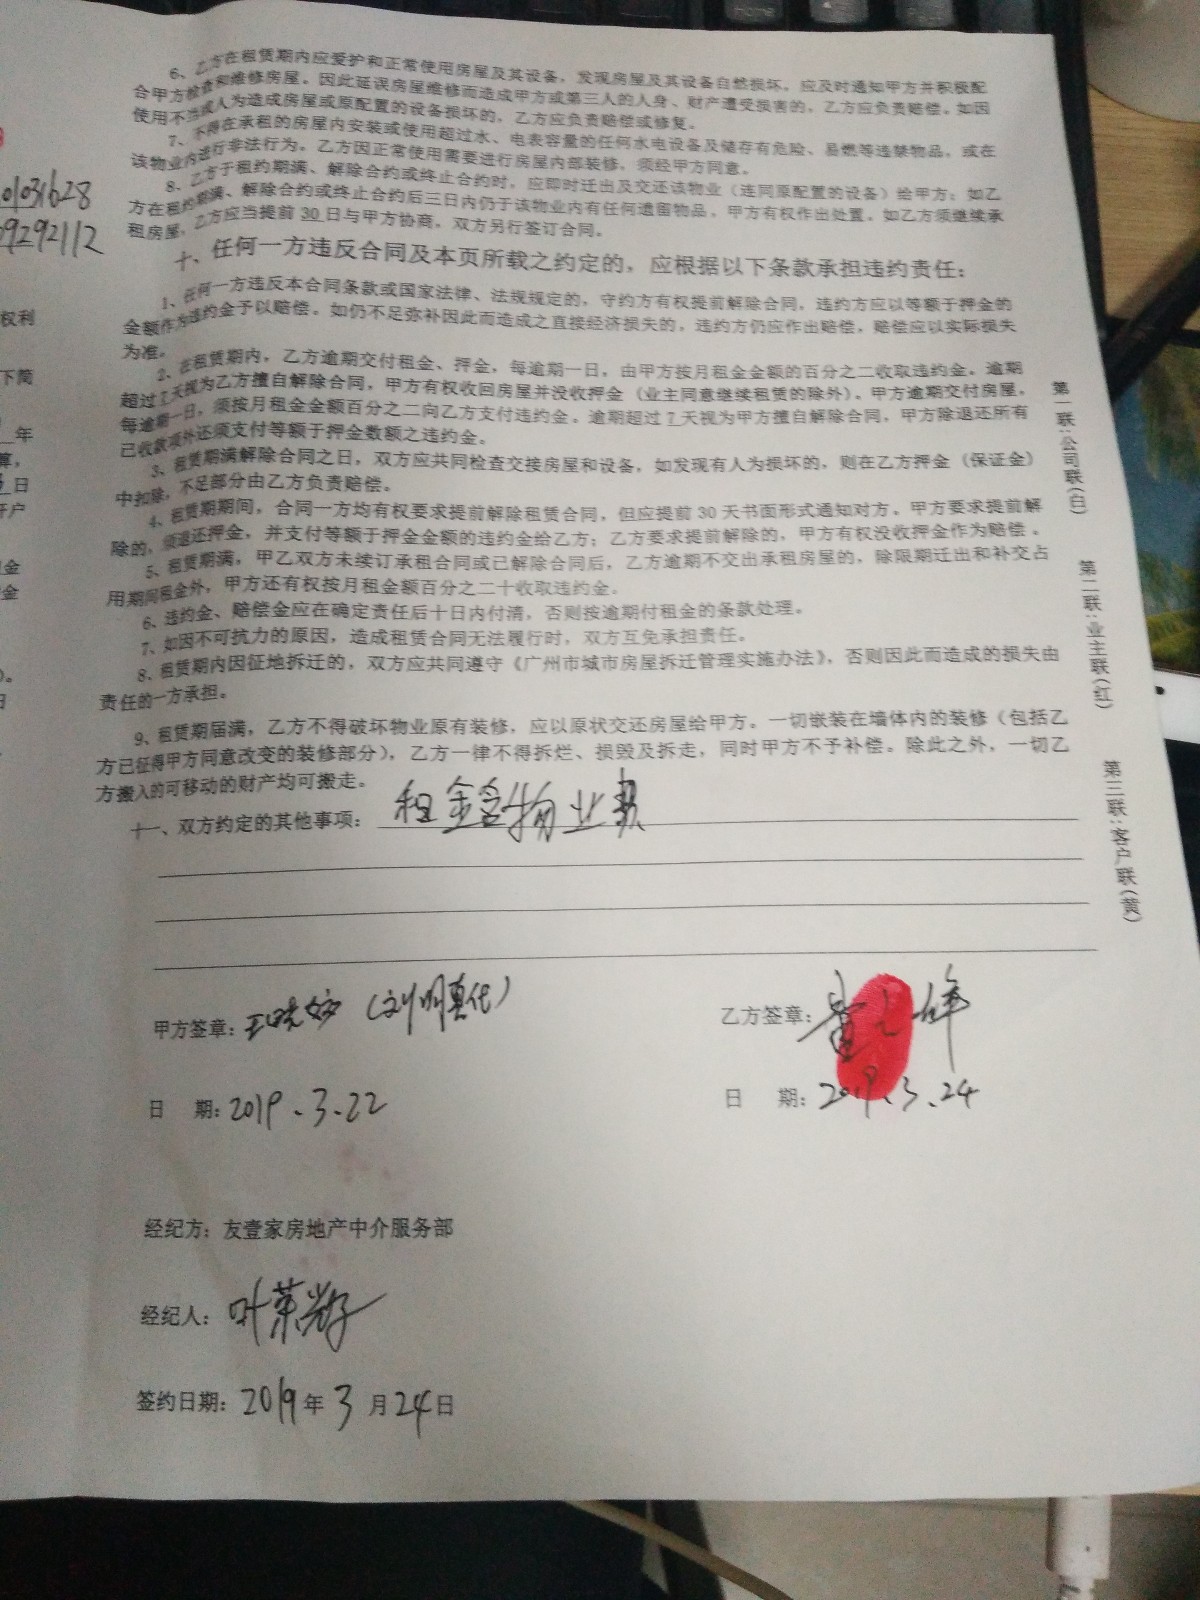 01031628
09292112
权利
下简
年
算，
日
开户
金
金
6、乙方在租赁期内应爱护和正常使用房屋及其设备，发现房屋及其设备自然损坏，应及时通知甲方并积极配
合甲方检查和维修房屋。因此延误房屋维修而造成甲方或第三人的人身、财产遭受损害的，乙方应负责赔偿。如因
使用不当或人为造成房屋或原配置的设备损坏的，乙方应负责赔偿或修复。
7、不得在承租的房屋内安装或使用超过水、电表容量的任何水电设备及储存有危险、易燃等违禁物品，或在
该物业内进行非法行为。乙方因正常使用需要进行房屋内部装修，须经甲方同意。
8、乙方于租约期满、解除合约或终止合约时，应即时迁出及交还该物业（连同原配置的设备）给甲方；如乙
方在租约期满、解除合约或终止合约后三日内仍于该物业内有任何遗留物品，甲方有权作出处置。如乙方须继续承
租房屋，乙方应当提前 30 日与甲方协商，双方另行签订合同。
十、任何一方违反合同及本页所载之约定的，应根据以下条款承担违约责任：
1、任何一方违反本合同条款或国家法律、法规规定的，守约方有权提前解除合同，违约方应以等额于押金的
金额作为违约金予以赔偿。如仍不足弥补因此而造成之直接经济损失的，违约方仍应作出赔偿，赔偿应以实际损失
为准。
2、在租赁期内，乙方逾期交付租金、押金，每逾期一日，由甲方按月租金金额的百分之二收取违约金。逾期
超过 7 天视为乙方擅自解除合同，甲方有权收回房屋并没收押金（业主同意继续租赁的除外）。甲方逾期交付房屋，
每逾期一日，须按月租金金额百分之二向乙方支付违约金。逾期超过 7 天视为甲方擅自解除合同，甲方除退还所有
已收款项外还须支付等额于押金数额之违约金。
3、租赁期满解除合同之日，双方应共同检查交接房屋和设备，如发现有人为损坏的，则在乙方押金（保证金）
中扣除，不足部分由乙方负责赔偿。
4、租赁期期间，合同一方均有权要求提前解除租赁合同，但应提前 30 天书面形式通知对方。甲方要求提前解
除的，须退还押金，并支付等额于押金金额的违约金给乙方；乙方要求提前解除的，甲方有权没收押金作为赔偿 。
5、租赁期满，甲乙双方未续订承租合同或已解除合同后，乙方逾期不交出承租房屋的，除限期迁出和补交占
用期间租金外，甲方还有权按月租金额百分之二十收取违约金。
6、违约金、赔偿金应在确定责任后十日内付清，否则按逾期付租金的条款处理。
7、如因不可抗力的原因，造成租赁合同无法履行时，双方互免承担责任。
8、租赁期内因征地拆迁的，双方应共同遵守《广州市城市房屋拆迁管理实施办法》，否则因此而造成的损失由
责任的一方承担。
9、租赁期届满，乙方不得破坏物业原有装修，应以原状交还房屋给甲方。一切嵌装在墙体内的装修（包括乙
方已征得甲方同意改变的装修部分），乙方一律不得拆烂、损毁及拆走，同时甲方不予补偿。除此之外，一切乙
方搬入的可移动的财产均可搬走。
十一、双方约定的其他事项：租金含物业费
甲方签章：王晓 （刘明真代）
乙方签章：
日 期：2019.3.22
日 期：2019.3.24
经纪方：友壹家房地产中介服务部
经纪人：叶
签约日期：2019年3月24日
第一联：公司联（白）
第二联：业主联（红）
第三联：客户联（黄）